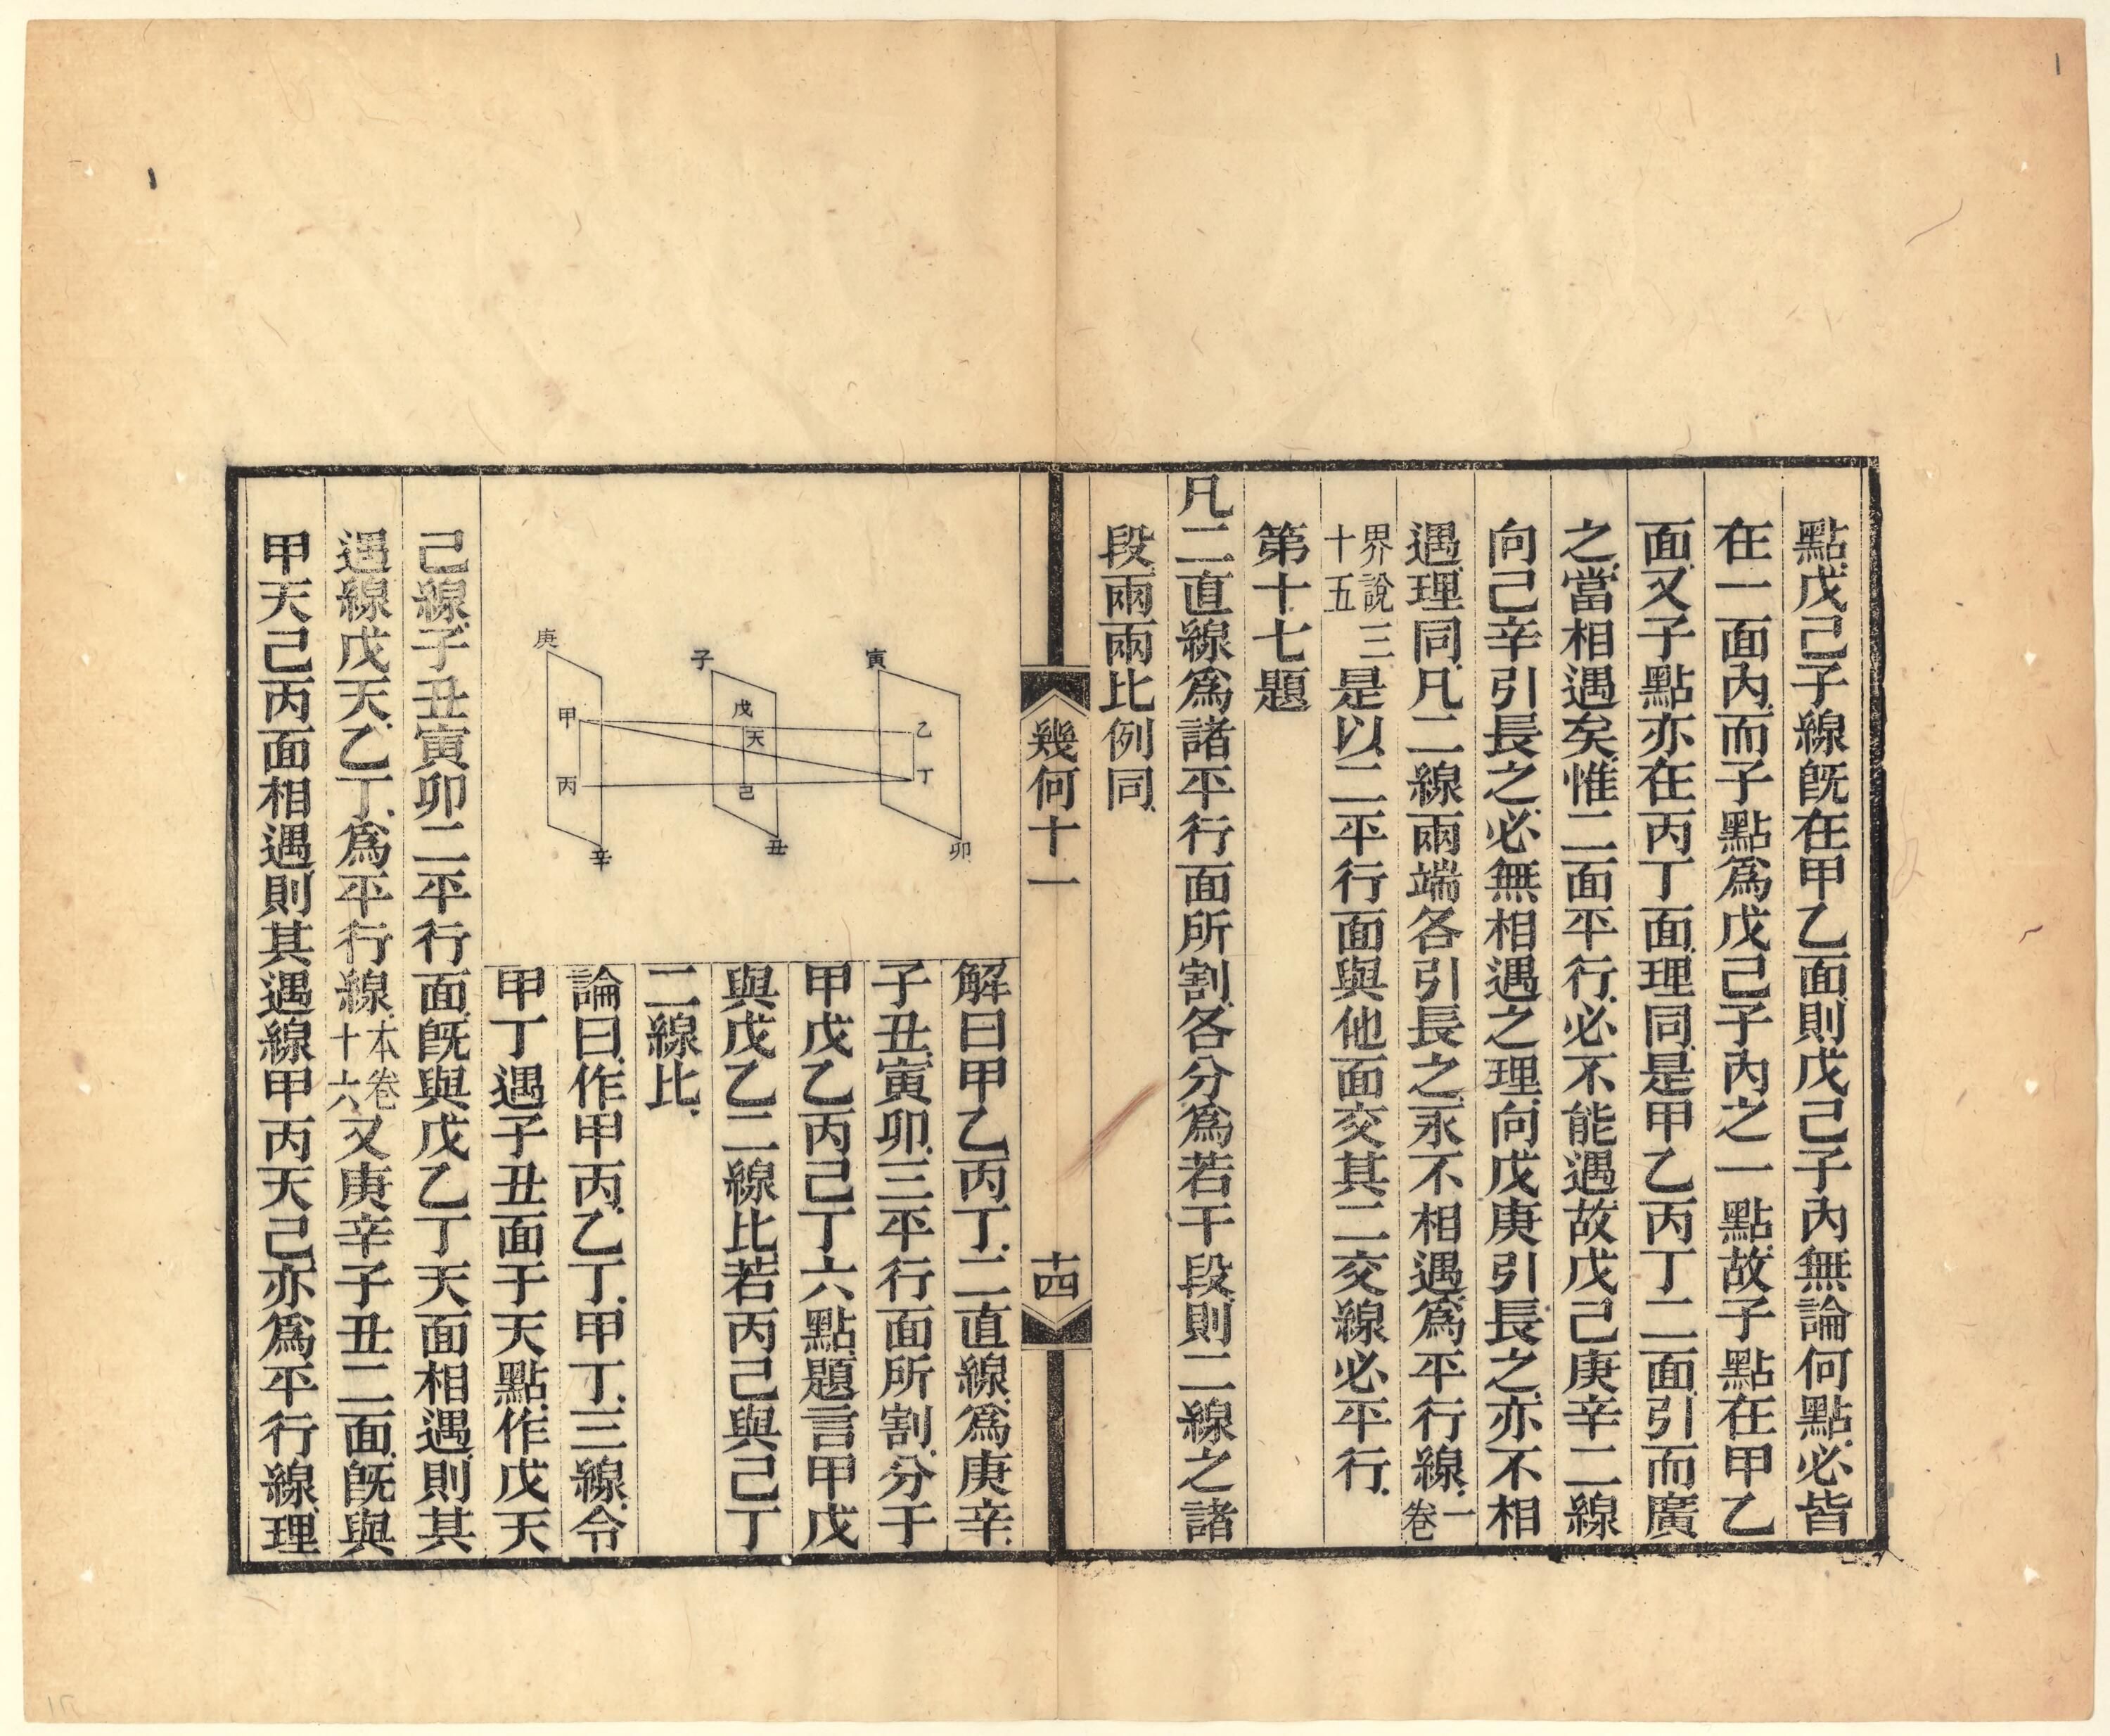 點戊己子線旣在甲乙面則戊己子內無論何點必皆
在一面內而子點爲戊己子內之一點故子點在甲乙
面又子點亦在丙丁面理同是甲乙丙丁二面引而廣
之當相遇矣惟二面平行必不能遇故戊己庚辛二線
向己辛引長之必無相遇之理向戊庚引長之亦不相
遇理同凡二線兩端各引長之永不相遇爲平行線卷一
界說三十五是以二平行面與他面交其二交線必平行
第十七題
凡二直線爲諸平行面所割各分爲若干段則二線之諸
段兩兩比例同
幾何十一
十四
庚
甲
丙
辛
子
戊
天
己
丑
寅
乙
丁
卯
解曰甲乙丙丁二直線爲庚辛
子丑寅卯三平行面所割分于
甲戊乙丙己丁六點題言甲戊
與戊乙二線比若丙己與己丁
二線比
論曰作甲丙乙丁甲丁三線令
甲丁遇子丑面于天點作戊天
己線子丑寅卯二平行面旣與戊乙丁天面相遇則其
遇線戊天乙丁爲平行線本卷十六又庚辛子丑二面旣與
甲天己丙面相遇則其遇線甲丙天己亦爲平行線理